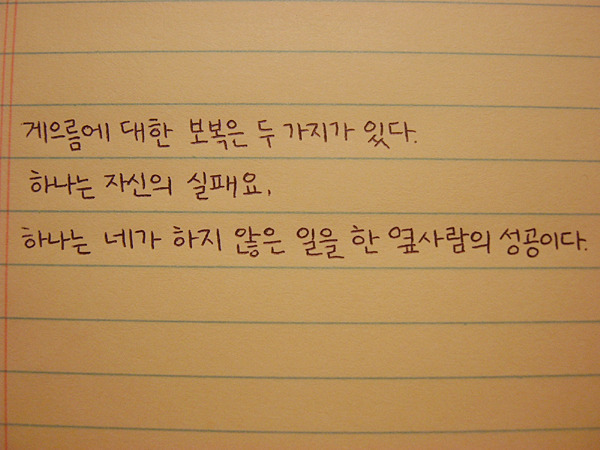 게으름에 대한 보복은 두 가지가 있다.
하나는 자신의 실패요,
하나는 네가 하지 않은 일을 한 옆사람의 성공이다.